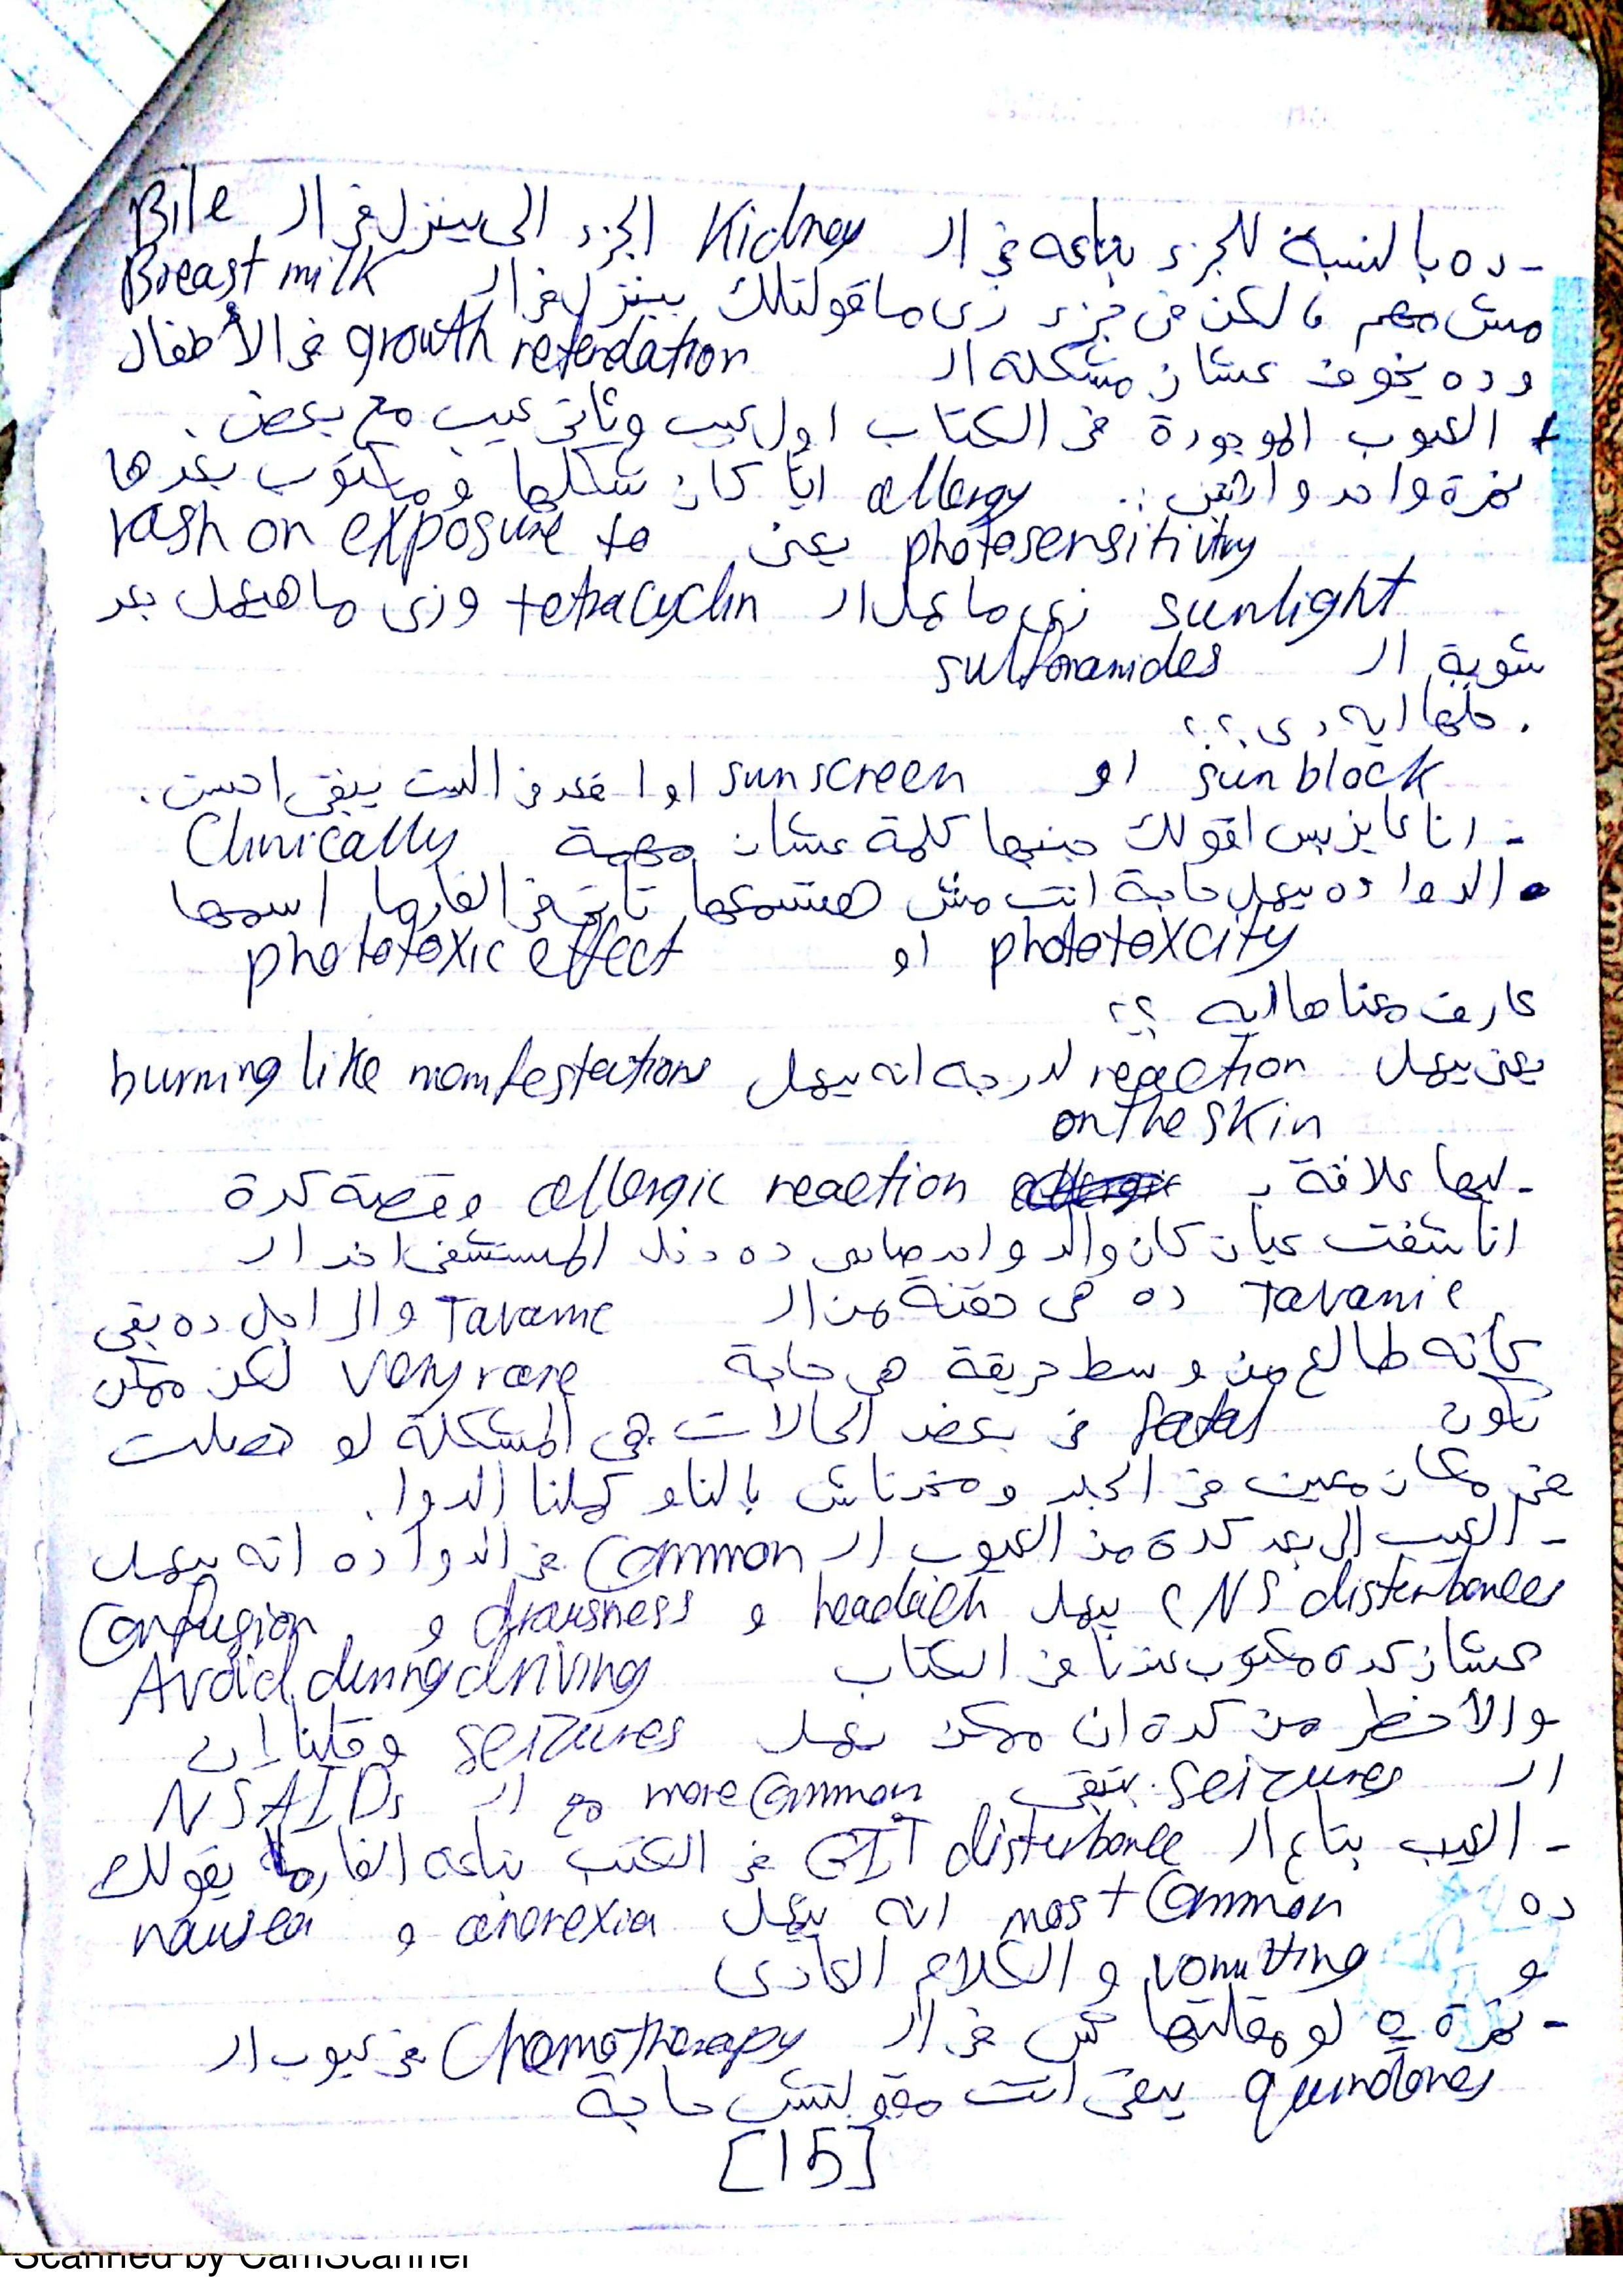 - ده بالنسبة للجزء بتاعه في ال Kidney الجزء الي بينزل في ال Bile
مش مهم، لكن في جزء زي ما قولتلك بينزل في ال Breast milk
وده يخوف عشان مشكلة ال growth reterdation في الأطفال
+ العيوب الموجودة في الكتاب اول عيب وثاني عيب مع بعض.
نمرة واحد واثنين :. allergy ايا كان شكلها ومكتوب بعدها
photosensitivity يعني rash on exposure to
sunlight زي ما عمل ال tetracyclin وزي ما هيعمل بعد
شوية ال sulfonamides
. حلها ايه دي؟؟
sun block او sunscreen او اقعد في البيت يبقى احسن.
- انا عايز بس اقولك جنبها كلمة عشان مهمة Clinically
• الدوا ده بيعمل حاجة انت مش هتسمعها تاني في الفارما اسمها
phototoxcity او phototoxic effect
عارف معناها ايه ؟؟
يعني بيعمل reaction لدرجة انه بيعمل burning like manifestations
on the skin
- ليها علاقة ب allergic reaction وقصة كدة
انا شفت عيان كان والد واحد صاحبي ده دخل المستشفى اخد ال
Tavanic ده في حقنة من ال Tavanic والراجل ده بقى
كأنه طالع من وسط حريقة هي حاجة very rare لكن ممكن
تكون fatal في بعض الحالات هي المشكلة لو حصلت
في مكان معين في الجلد ومخدناش بالنا وكملنا الدوا.
- العيب الي بعد كدة من العيوب ال Common في الدوا ده انه بيعمل
CNS disterbances بيعمل headach و drowsness و Confusion
عشان كدة مكتوب عندنا في الكتاب Avoid during driving
والأخطر من كدة ان ممكن يعمل seizures وقلنا إن
ال seizures بتبقى more Common مع ال NSAIDs
- العيب بتاع ال GIT disterbance في الكتب بتاعة الفارما يقولك
ده most Common انه بيعمل anorexia و nausea
و vomitting والكلام العادي
- نمرة ٥ لو مقلتهاش في ال Chemotherapy في عيوب ال
quinolones يبقى انت مقولتش حاجة
[15]
Scanned by CamScanner